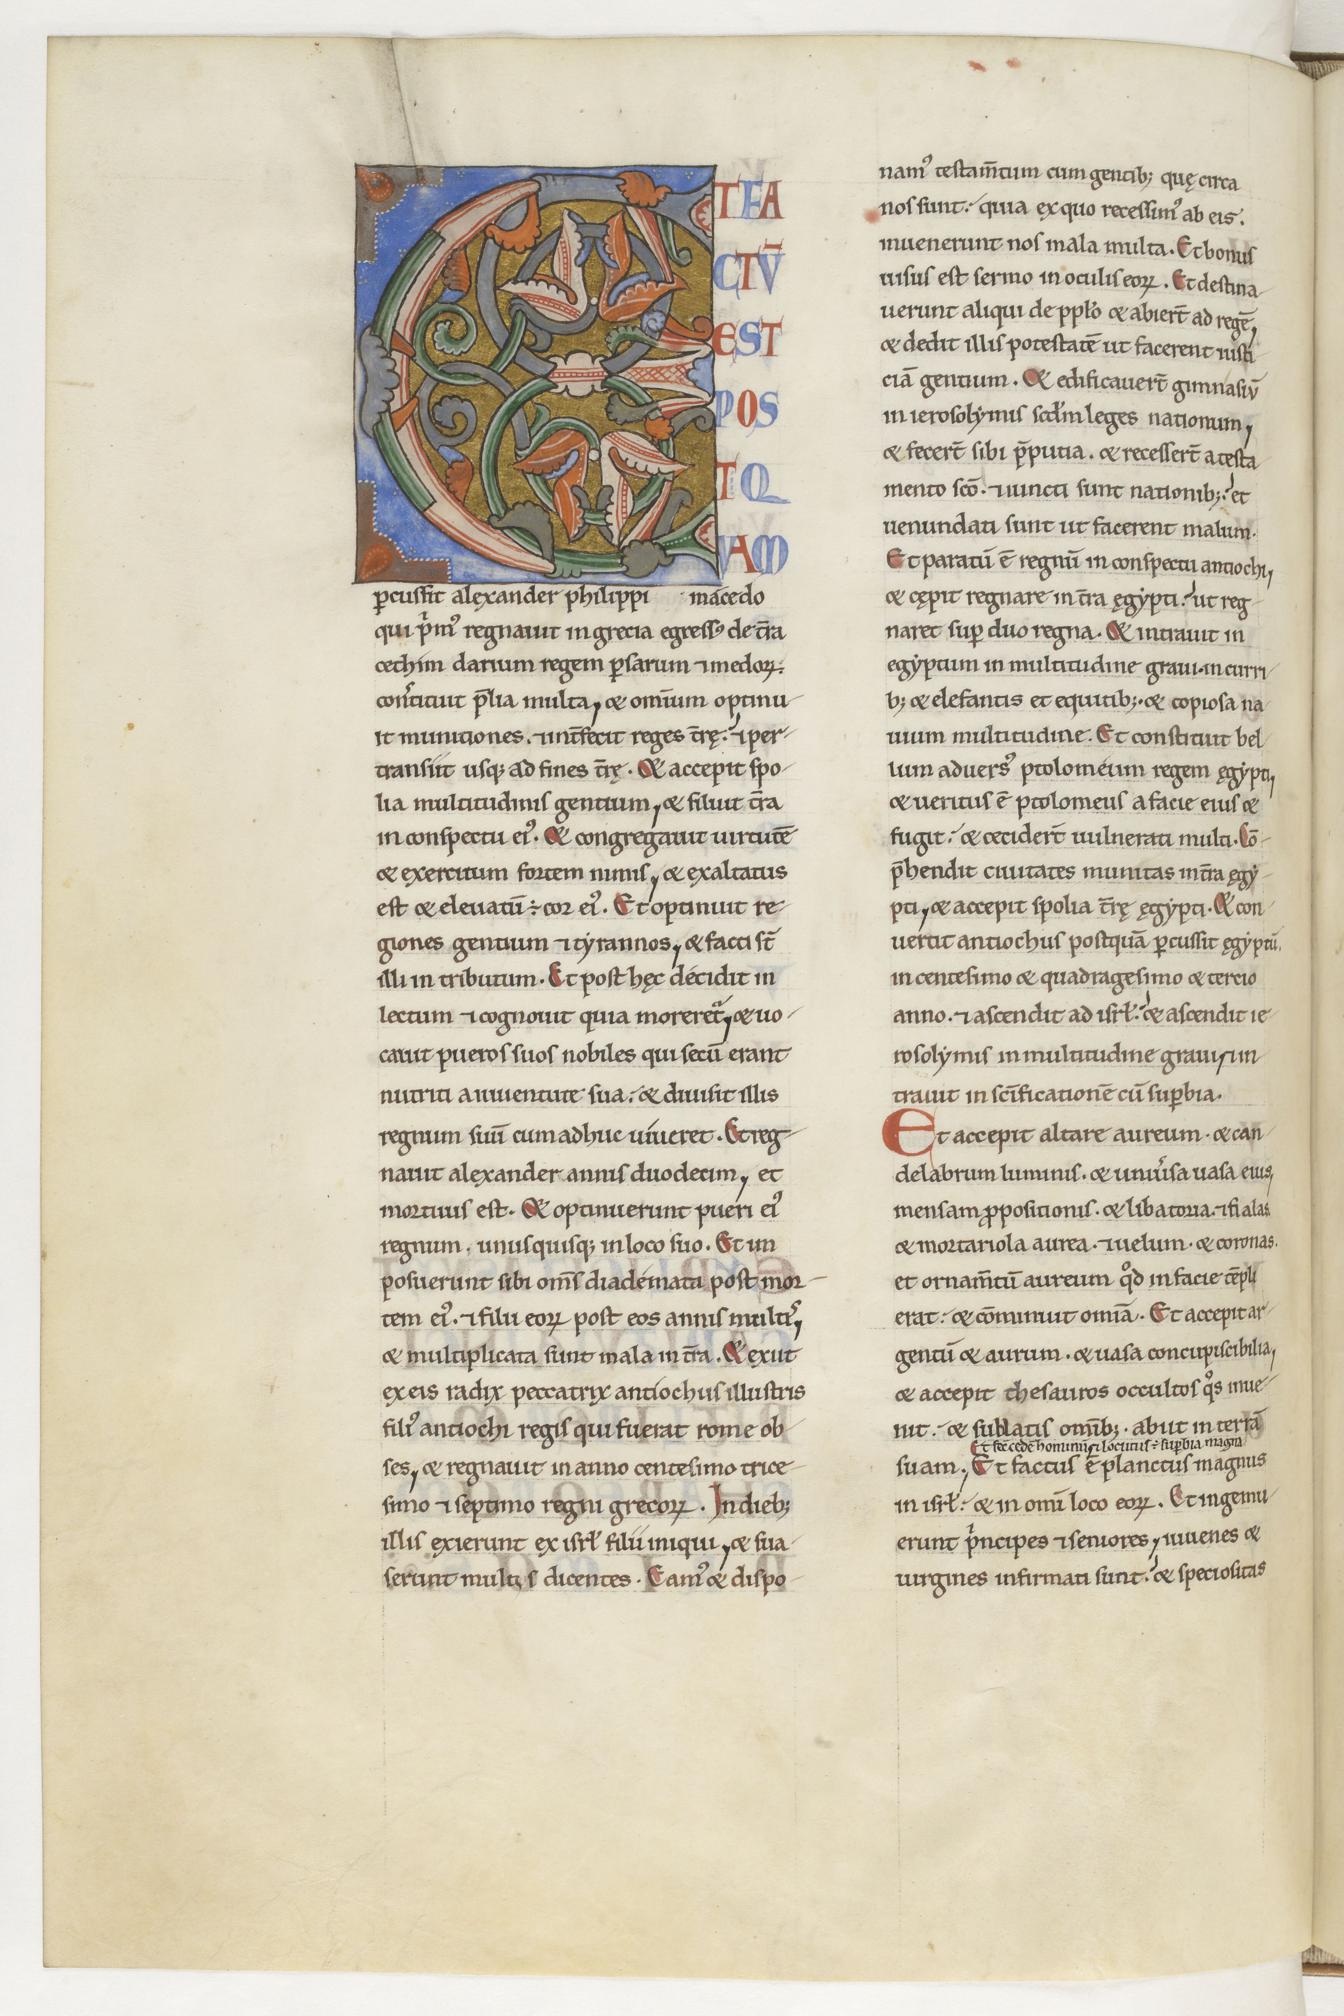 ET FA
CTŪ
EST
POS
T Q
VAM
ꝑcussit alexander philippi macedo
qui p̄mꝰ regnauit in grecia egressꝰ de t̄ra
cethim darium regem ꝑsarum ⁊ medoꝝ.
constituit p̄lia multa, & omnium optinu
it munitiones. ⁊ int̄fecit reges t̄rę. ⁊ per
transiit usq; ad fines t̄rę. & accepit spo
lia multitudinis gentium, & siluit t̄ra
in conspectu eiꝰ. & congregauit uirtutē
& exercitum fortem nimis, & exaltatus
est & eleuatū ÷ cor eiꝰ. Et optinuit re
giones gentium ⁊ tyrannos, & facti st̄
illi in tributum. Et post hęc decidit in
lectum ⁊ cognouit quia moreret᷑, & uo
cauit pueros suos nobiles qui secū erant
nutriti a iuuentute sua. & diuisit illis
regnum suū cum adhuc uiueret. Et reg
nauit alexander annis duodecim, et
mortuus est. & optinuerunt pueri eiꝰ
regnum. unusquisq; in loco suo. Et im
posuerunt sibi om̄s diademata post mor
tem eiꝰ. ⁊ filii eoꝝ post eos annis multis,
& multiplicata sunt mala in t̄ra. & exiit
ex eis radix peccatrix antiochus illustris
filiꝰ antiochi regis qui fuerat rome ob
ses, & regnauit in anno centesimo trice
simo ⁊ septimo regni grecoꝝ. In dieb;
illis exierunt ex isrł filii iniqui, & sua
serunt multis dicentes. Eamꝰ & dispo
namꝰ testam̄tum cum gentib; quę circa
nos sunt. quia ex quo recessimꝰ ab eis.
inuenerunt nos mala multa. Et bonus
uisus est sermo in oculis eoꝝ. Et destina
uerunt aliqui de ppło & abiert̄ ad regē,
& dedit illis potestatē ut facerent iusti
ciā gentium. & edificauert̄ gimnasiū
in ierosolymis scdm̄ leges nationum,
& fecert̄ sibi p̄putia. & recessert̄ a testa
mento sc̄o. ⁊ iuncti sunt nationib;. et
uenundati sunt ut facerent malum.
Et paratū ē regnū in conspectu antiochi,
& cępit regnare in t̄ra ęgypti. ut reg
naret suꝑ duo regna. & intrauit in
egyptum in multitudine graui. in curri
b; & elefantis et equitib;. & copiosa na
uium multitudine. Et constituit bel
lum aduersꝰ ptolomeum regem ęgypti,
& ueritus ē ptolomeus a facie eius &
fugit. & cecidert̄ uulnerati multi. Cō
p̄hendit ciuitates munitas in t̄ra ęgy
pti, & accepit spolia t̄rę ęgypti. & con
uertit antiochus postquā ꝑcussit ęgyptū.
in centesimo & quadragesimo & tercio
anno. ⁊ ascendit ad isrł. & ascendit ie
rosolymis in multitudine graui, ⁊ in
trauit in sc̄ificationē cū suꝑbia.
Et accepit altare aureum. & can
delabrum luminis. & uniūsa uasa eius,
mensam ꝓpositionis. & libatoria. ⁊ fialas
& mortariola aurea. ⁊ uelum. & coronas.
et ornam̄tū aureum qd̄ in facie tēpli
erat. & cōminuit omīa. Et accepit ar
gentū & aurum. & uasa concupiscibilia,
& accepit thesauros occultos qͦs inue
nit. & sublatis omīb;. abiit in terrā
Et fec̄ cedē hominū, ⁊ locutus ÷ suꝑbia magna
suam, Et factus ē planctus magnus
in isrł. & in omī loco eoꝝ. Et ingemu
erunt p̄ncipes ⁊ seniores, iuuenes &
uirgines infirmati sunt. & speciositas